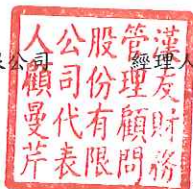 公司 經理人
漢友財務
管理顧問
股份有限
公司代表
人顧曼芹